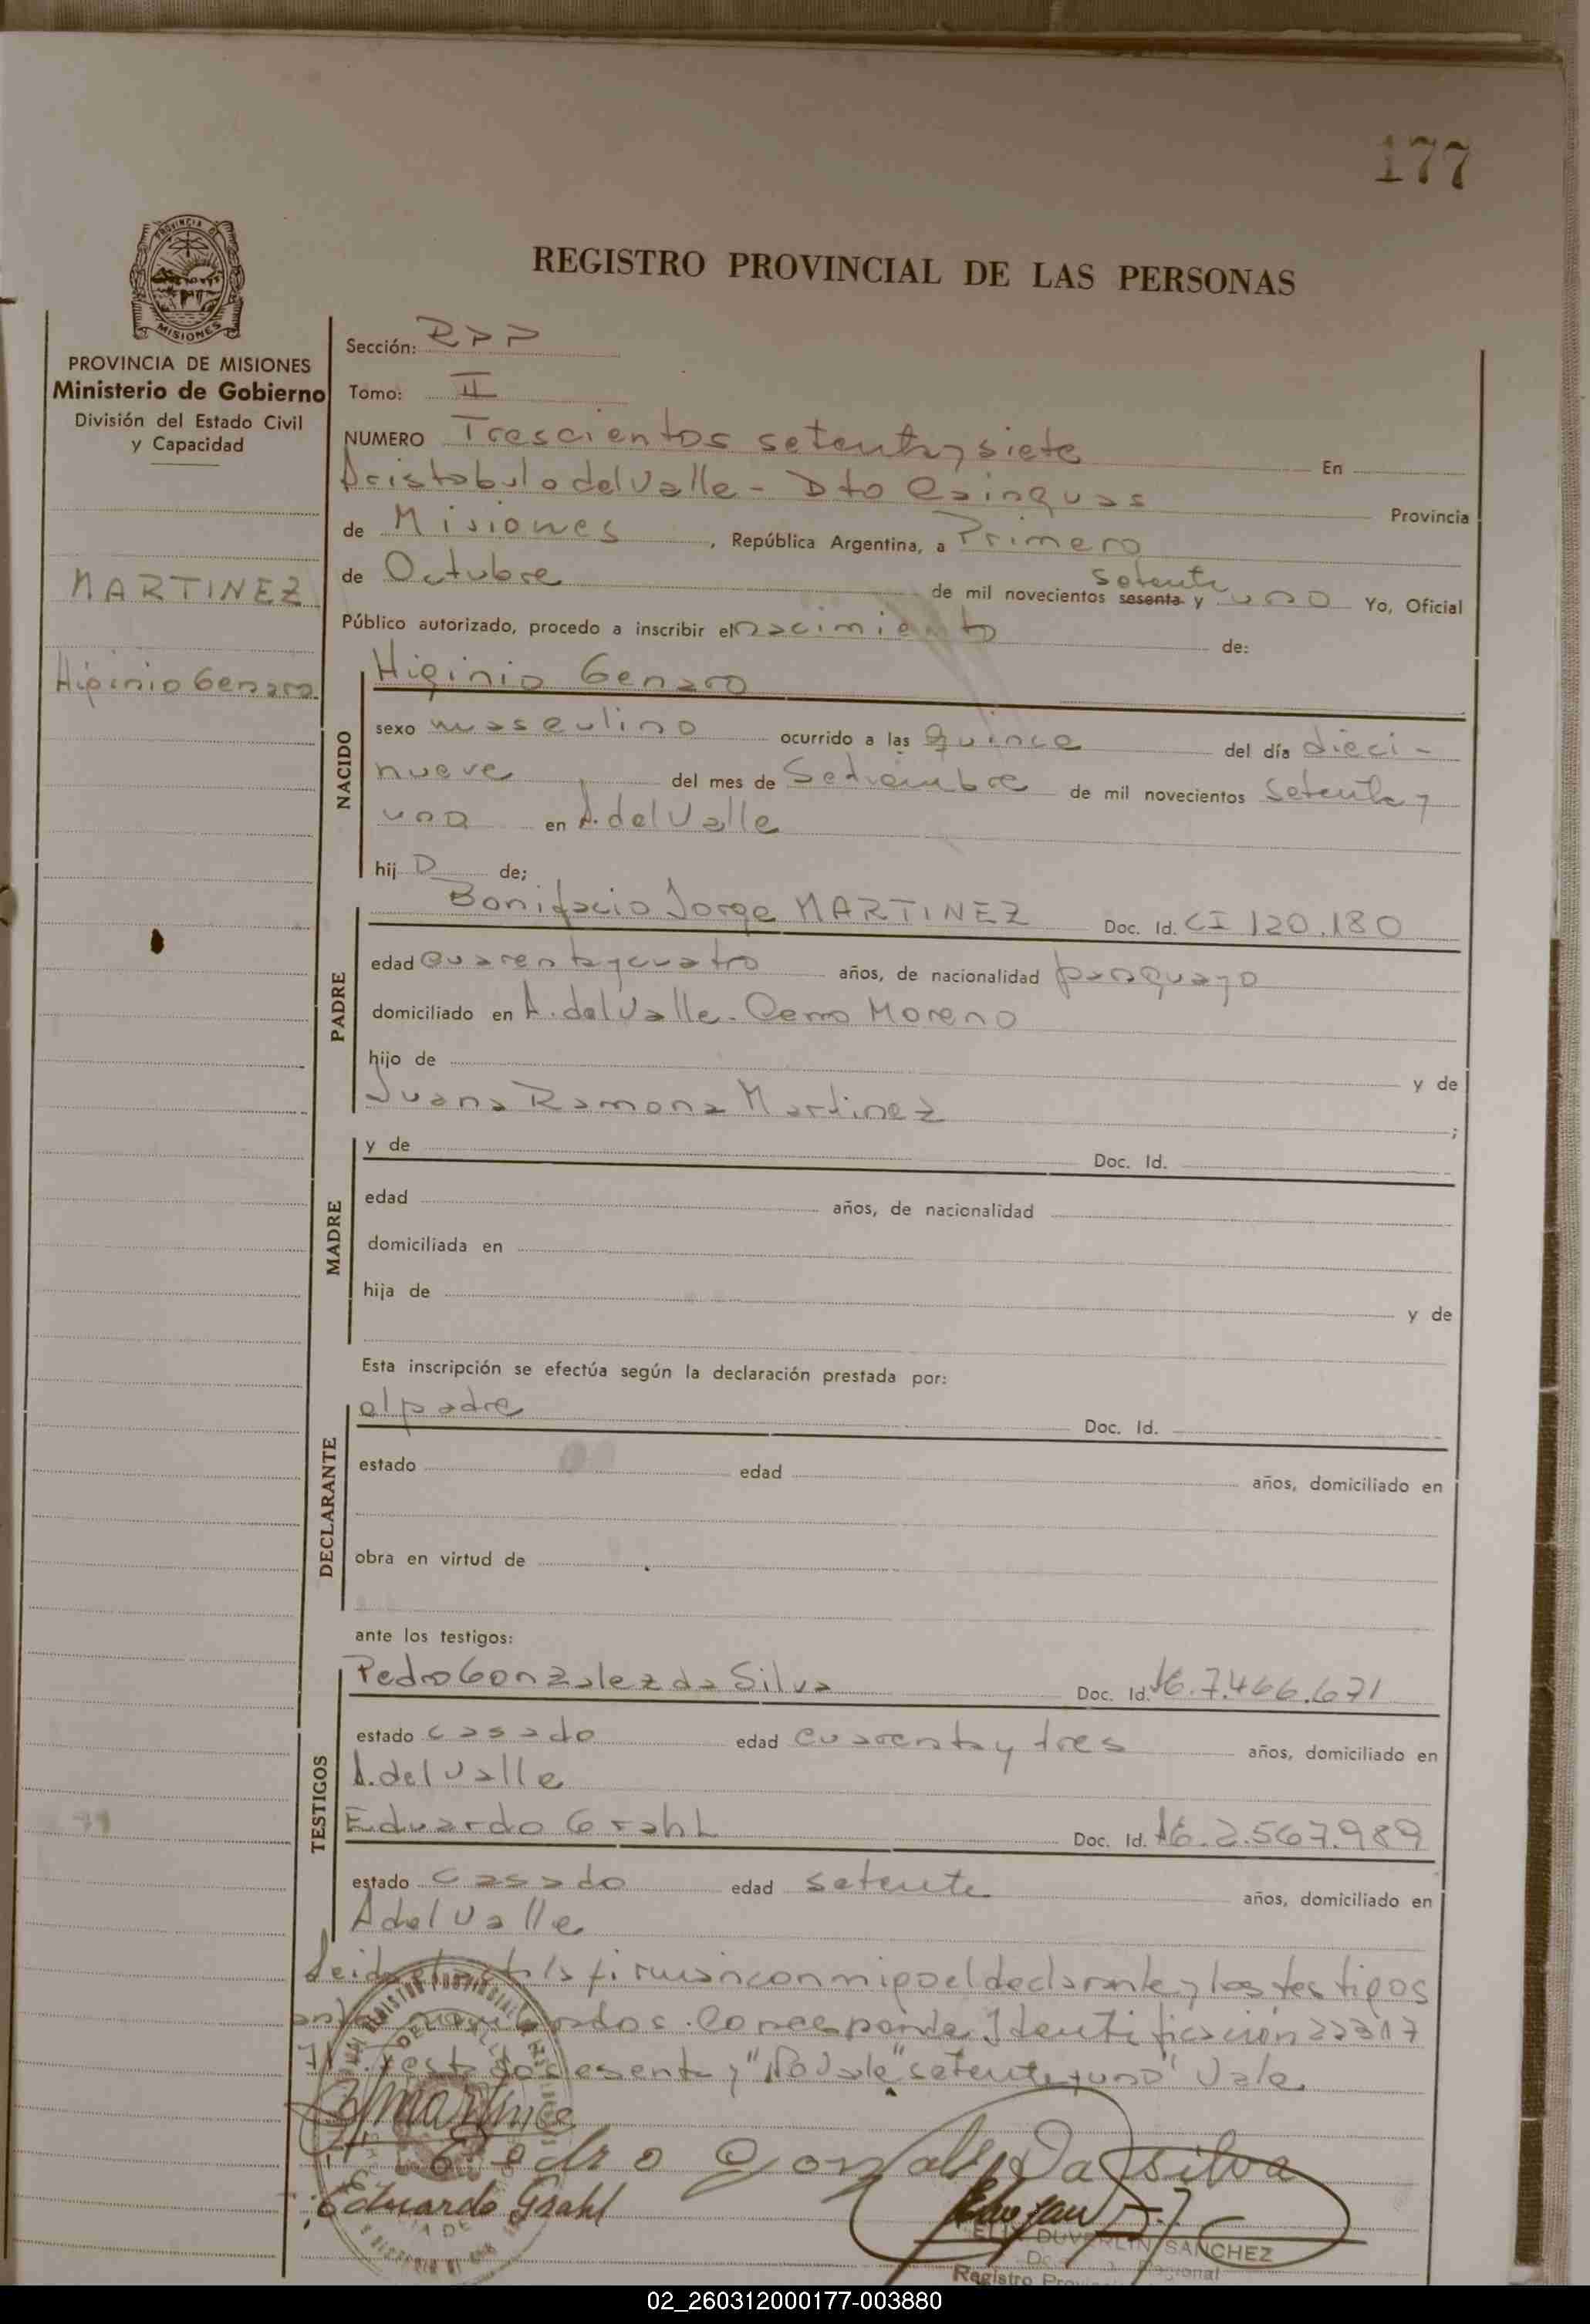 177
PROVINCIA DE
MISIONES
REGISTRO PROVINCIAL DE LAS PERSONAS
PROVINCIA DE MISIONES
Ministerio de Gobierno
División del Estado Civil
y Capacidad
MARTINEZ
Higinio Genaro
Sección: RPP
Tomo: II
NUMERO Trescientos setenta y siete En
Aristobulo del Valle - Dto Cainguas Provincia
de Misiones, República Argentina, a Primero
setenta
de Octubre de mil novecientos sesenta y uno Yo, Oficial
Público autorizado, procedo a inscribir el nacimiento de:
NACIDO
Higinio Genaro
sexo masculino ocurrido a las quince del día dieci-
nueve del mes de Setiembre de mil novecientos setenta y
uno en A. del Valle
hij o de;
PADRE
Bonifacio Jorge MARTINEZ Doc. Id. CI 120.180
edad cuarenta y cuatro años, de nacionalidad paraguayo
domiciliado en A. del Valle - Cerro Moreno
hijo de y de
Juana Ramona Martinez ;
MADRE
y de Doc. Id.
edad años, de nacionalidad
domiciliada en
hija de y de
Esta inscripción se efectúa según la declaración prestada por:
DECLARANTE
el padre Doc. Id.
estado edad años, domiciliado en
obra en virtud de
ante los testigos:
TESTIGOS
Pedro Gonzalez da Silva Doc. Id. 7.466.671
estado casado edad cuarenta y tres años, domiciliado en
A. del Valle
Eduardo Grahl Doc. Id. 2.567.989
estado casado edad setenta años, domiciliado en
A del Valle
Leida el acta la firman conmigo el declarante y los testigos
nombrados. Corresponde Identificación 22317
testado sesenta y "No Vale" setenta y uno" Vale
Martinez
Pedro Gonzalez Da silva
Eduardo Grahl
DUVERLIN SANCHEZ
Registro
02_260312000177-003880